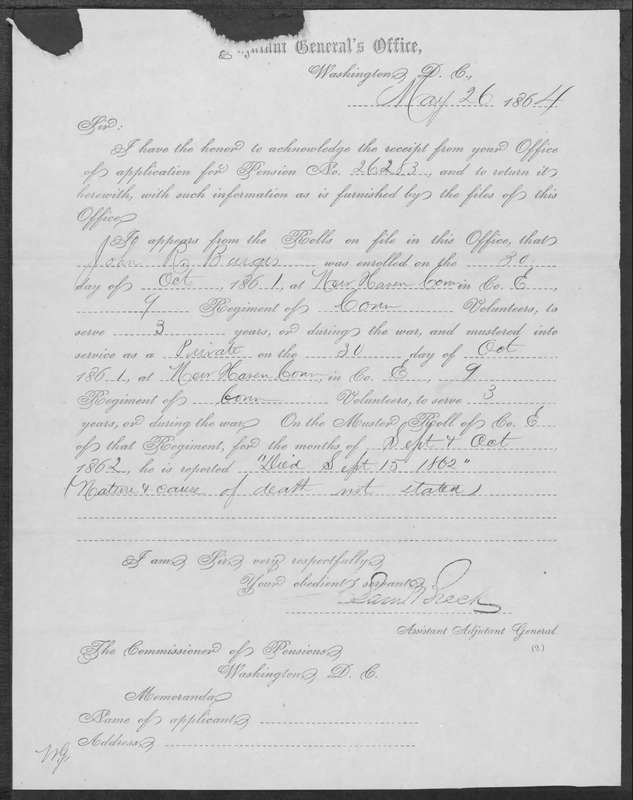 Adjutant General's Office,
Washington, D. C.,
May 26 1864
Sir:
I have the honor to acknowledge the receipt from your Office
of application for Pension No. 26283, and to return it
herewith, with such information as is furnished by the files of this
Office.
It appears from the Rolls on file in this Office, that
John R. Burgis was enrolled on the 30
day of Oct, 1861, at New Haven Conn in Co. E,
9 Regiment of Conn Volunteers, to
serve 3 years, or during the war, and mustered into
service as a Private on the 30 day of Oct
1861, at New Haven Conn, in Co. E, 9
Regiment of Conn Volunteers, to serve 3
years, or during the war. On the Muster Roll of Co. E
of that Regiment, for the months of Sept & Oct
1862, he is reported "Died Sept 15 1862"
(Nature & cause of death not stated)
I am, Sir, very respectfully,
Your obedient servant,
Saml Breck
Assistant Adjutant General.
(2.)
The Commissioner of Pensions,
Washington, D. C.
Memoranda
Name of applicant,
Address,